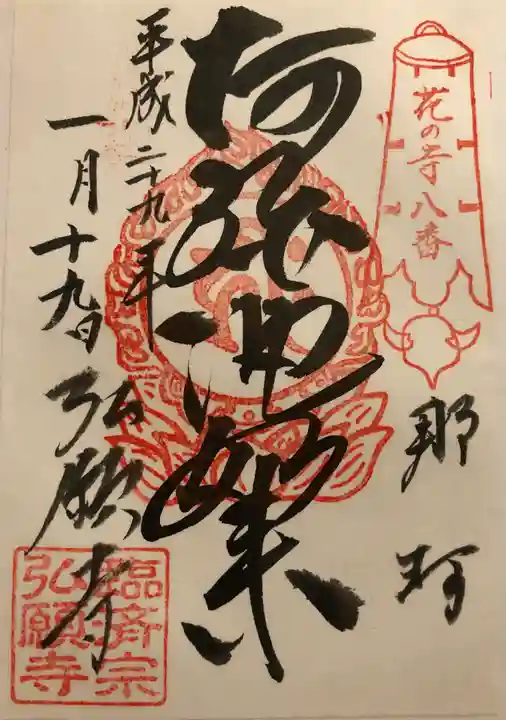 花の寺八番
那珂
阿弥陀如来
平成二十九年
一月十九日
弘願寺
臨済宗
弘願寺